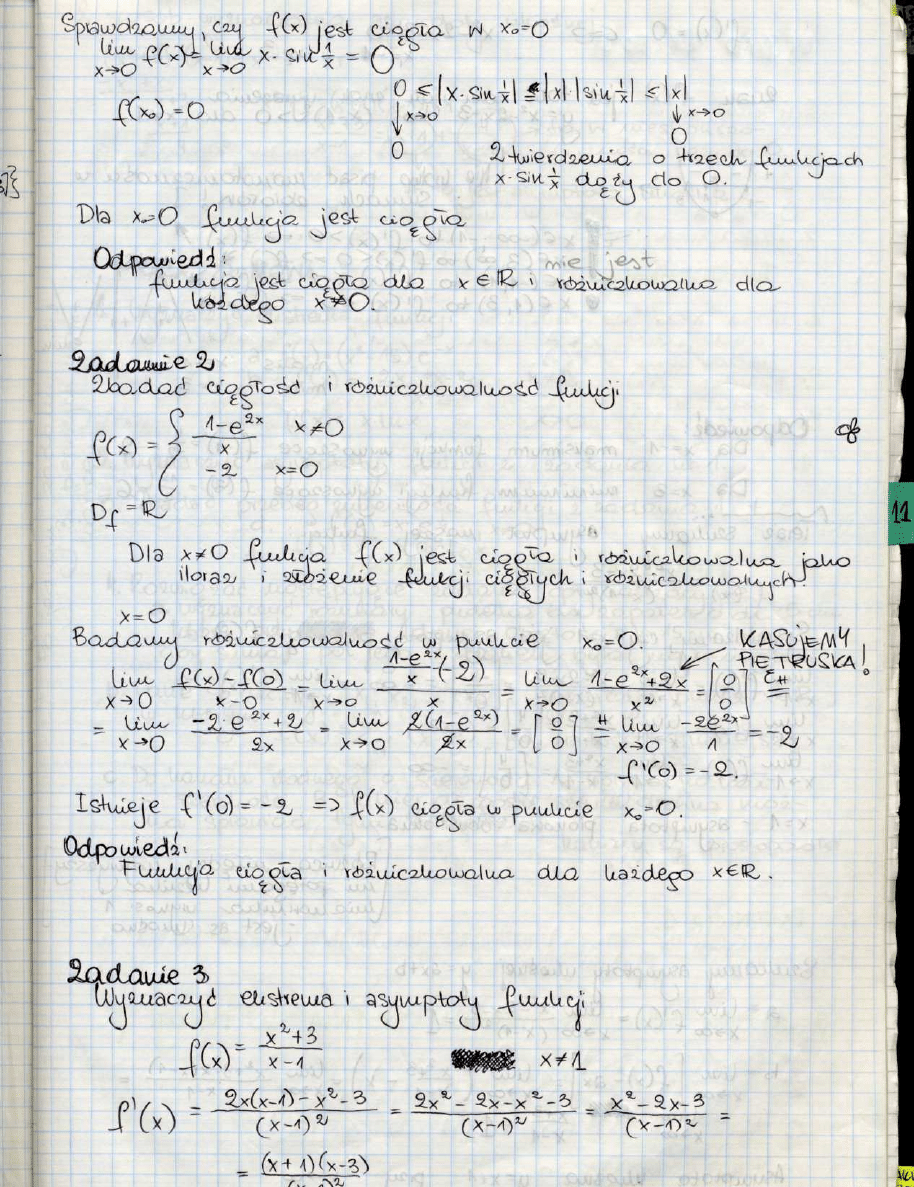 Sprawdzamy, czy f(x) jest ciągła w x₀=0
lim x→0 f(x) = lim x→0 x·sin 1/x = 0
0 ≤ |x·sin 1/x| ≤ |x| |sin 1/x| ≤ |x|
f(x₀) = 0
↓ x→0 ↓ x→0
0 0
Z twierdzenia o trzech funkcjach
x·sin 1/x dąży do 0.
Dla x=0 funkcja jest ciągła
Odpowiedź: nie jest
funkcja jest ciągła dla x∈ℝ i różniczkowalna dla
każdego x≠0.
Zadanie 2
Zbadać ciągłość i różniczkowalność funkcji
f(x) = { (1-e^2x)/x x≠0
-2 x=0
Df = ℝ
11
Dla x≠0 funkcja f(x) jest ciągła i różniczkowalna jako
iloraz i złożenie funkcji ciągłych i różniczkowalnych.
x=0
Badamy różniczkowalność w punkcie x₀=0. KASUJEMY
PIĘTRUSKA!
lim x→0 (f(x)-f(0))/(x-0) = lim x→0 ((1-e^2x)/x -(-2))/x = lim x→0 (1-e^2x+2x)/x² = [0/0] =H
= lim x→0 (-2·e^2x+2)/2x = lim x→0 2(1-e^2x)/2x = [0/0] =H lim x→0 -2e^2x/1 = -2
f'(0) = -2.
Istnieje f'(0) = -2 => f(x) ciągła w punkcie x₀=0.
Odpowiedź:
Funkcja ciągła i różniczkowalna dla każdego x∈ℝ.
Zadanie 3
Wyznaczyć ekstrema i asymptoty funkcji
f(x) = (x²+3)/(x-1) x≠1
f'(x) = (2x(x-1)-x²-3)/(x-1)² = (2x²-2x-x²-3)/(x-1)² = (x²-2x-3)/(x-1)² =
= (x+1)(x-3)/(x-1)²